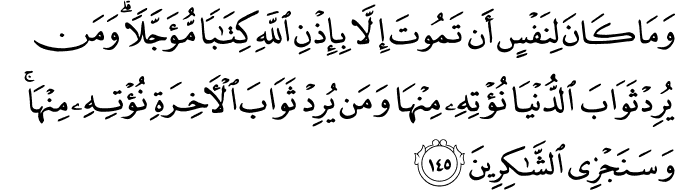 وَمَا كَانَ لِنَفْسٍ أَن تَمُوتَ إِلَّا بِإِذْنِ ٱللَّهِ كِتَٰبًا مُّؤَجَّلًا ۗ وَمَن
يُرِدْ ثَوَابَ ٱلدُّنْيَا نُؤْتِهِۦ مِنْهَا وَمَن يُرِدْ ثَوَابَ ٱلْءَاخِرَةِ نُؤْتِهِۦ مِنْهَا ۚ
وَسَنَجْزِى ٱلشَّٰكِرِينَ ١٤٥